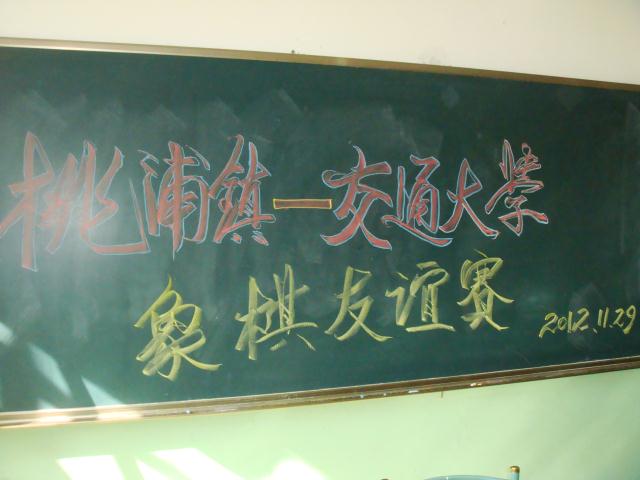 桃浦镇—交通大学
象棋友谊赛
2012.11.29